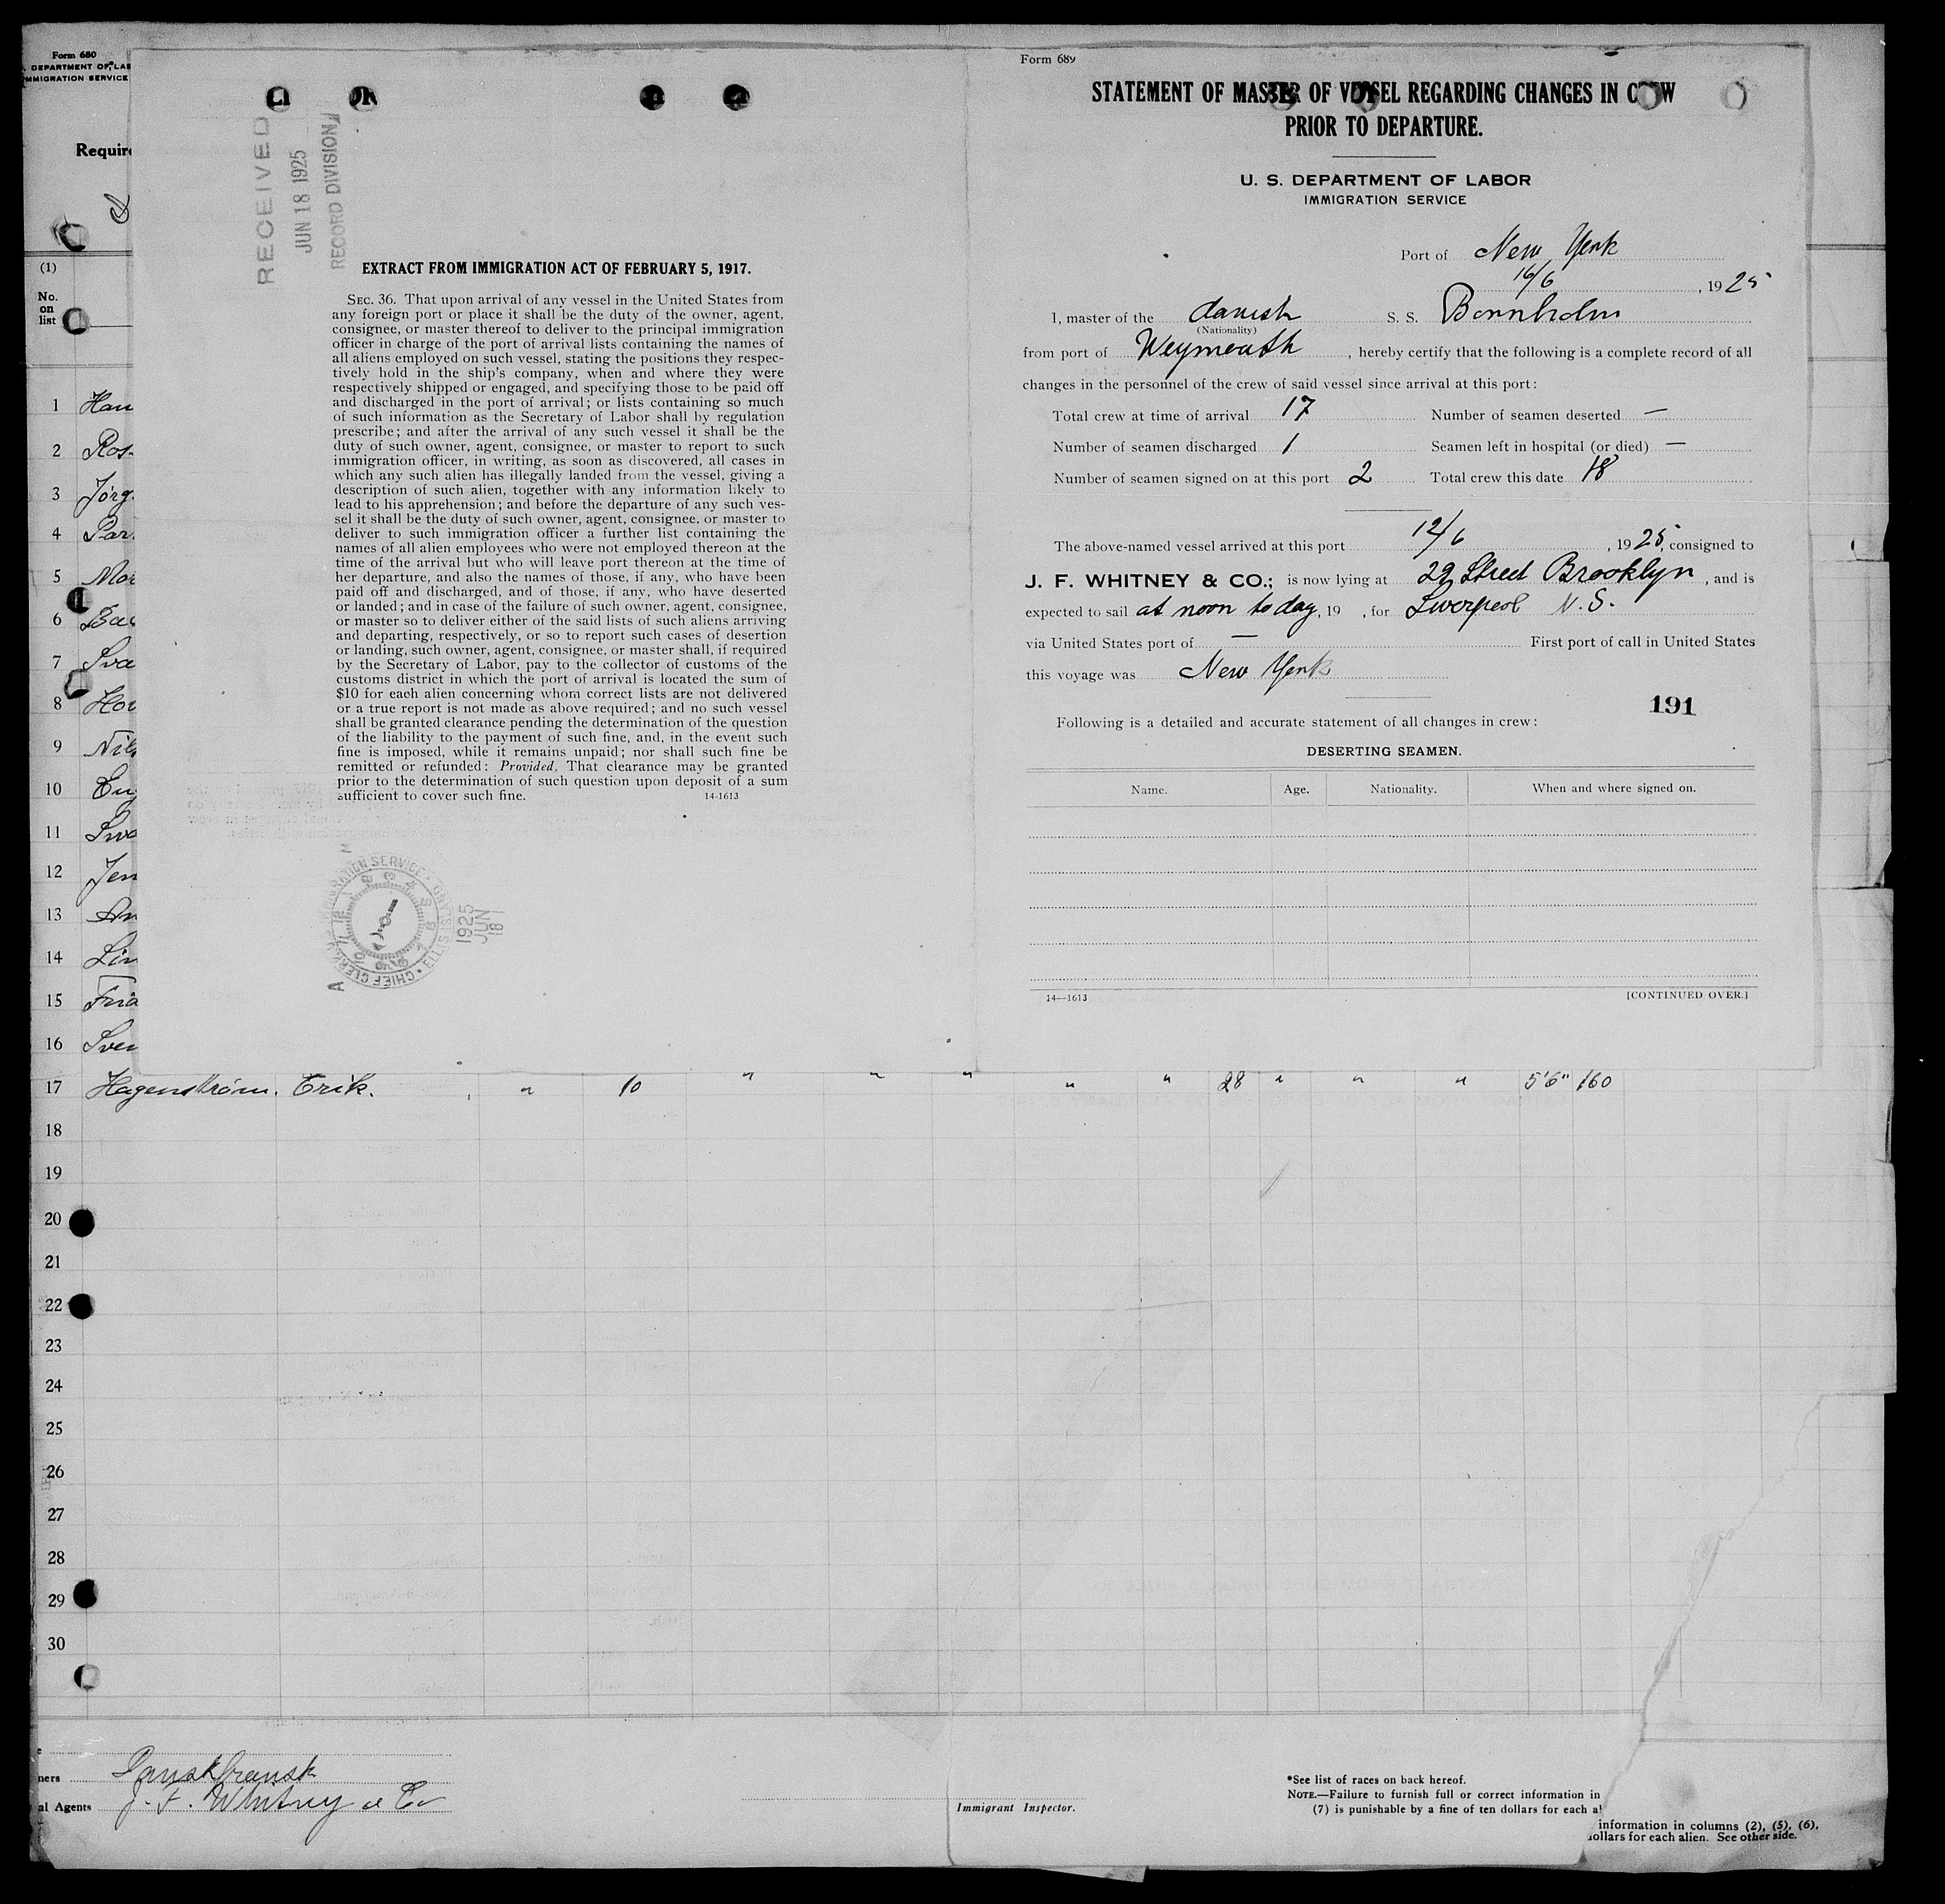 Form 680
DEPARTMENT OF LAB
IMMIGRATION SERVICE
Require
(1)
No.
on
list
RECEIVED
JUN 18 1925
RECORD DIVISION
EXTRACT FROM IMMIGRATION ACT OF FEBRUARY 5, 1917.
SEC. 36. That upon arrival of any vessel in the United States from
any foreign port or place it shall be the duty of the owner, agent,
consignee, or master thereof to deliver to the principal immigration
officer in charge of the port of arrival lists containing the names of
all aliens employed on such vessel, stating the positions they respec-
tively hold in the ship's company, when and where they were
respectively shipped or engaged, and specifying those to be paid off
and discharged in the port of arrival; or lists containing so much
of such information as the Secretary of Labor shall by regulation
prescribe; and after the arrival of any such vessel it shall be the
duty of such owner, agent, consignee, or master to report to such
immigration officer, in writing, as soon as discovered, all cases in
which any such alien has illegally landed from the vessel, giving a
description of such alien, together with any information likely to
lead to his apprehension; and before the departure of any such ves-
sel it shall be the duty of such owner, agent, consignee, or master to
deliver to such immigration officer a further list containing the
names of all alien employees who were not employed thereon at the
time of the arrival but who will leave port thereon at the time of
her departure, and also the names of those, if any, who have been
paid off and discharged, and of those, if any, who have deserted
or landed; and in case of the failure of such owner, agent, consignee,
or master so to deliver either of the said lists of such aliens arriving
and departing, respectively, or so to report such cases of desertion
or landing, such owner, agent, consignee, or master shall, if required
by the Secretary of Labor, pay to the collector of customs of the
customs district in which the port of arrival is located the sum of
$10 for each alien concerning whom correct lists are not delivered
or a true report is not made as above required; and no such vessel
shall be granted clearance pending the determination of the question
of the liability to the payment of such fine, and, in the event such
fine is imposed, while it remains unpaid; nor shall such fine be
remitted or refunded: Provided, That clearance may be granted
prior to the determination of such question upon deposit of a sum
sufficient to cover such fine. 14-1613
IMMIGRATION SERVICE ELLIS ISLAND CHIEF CLERK
1925
JUN
18
Form 689
STATEMENT OF MASTER OF VESSEL REGARDING CHANGES IN CREW
PRIOR TO DEPARTURE.
U. S. DEPARTMENT OF LABOR
IMMIGRATION SERVICE
Port of New York
16/6, 1925
I, master of the danish S. S. Bornholm
(Nationality)
from port of Weymouth, hereby certify that the following is a complete record of all
changes in the personnel of the crew of said vessel since arrival at this port:
Total crew at time of arrival 17 Number of seamen deserted —
Number of seamen discharged 1 Seamen left in hospital (or died) —
Number of seamen signed on at this port 2 Total crew this date 18
The above-named vessel arrived at this port 12/6, 1925, consigned to
J. F. WHITNEY & CO.; is now lying at 29 Street Brooklyn, and is
expected to sail at noon today, 19 , for Liverpool N. S.
via United States port of — First port of call in United States
this voyage was New York
191
Following is a detailed and accurate statement of all changes in crew:
DESERTING SEAMEN.
Name. Age. Nationality. When and where signed on.
14—1613 [CONTINUED OVER.]
1 Han
2 Ros
3 Jörg
4 Par
5 Mor
6
7 Sva
8 Hor
9 Nils
10
11 Sva
12 Jen
13 An
14 Lin
15 Frid
16 Sven
17 Hagenström. Erik. " 10 " " " " " 28 " " " 5'6" 160
18
19
20
21
22
23
24
25
26
27
28
29
30
ners Danskfransk
al Agents J. F. Whitney & Co
Immigrant Inspector.
*See list of races on back hereof.
NOTE.—Failure to furnish full or correct information in
(7) is punishable by a fine of ten dollars for each al
information in columns (2), (5), (6),
dollars for each alien. See other side.